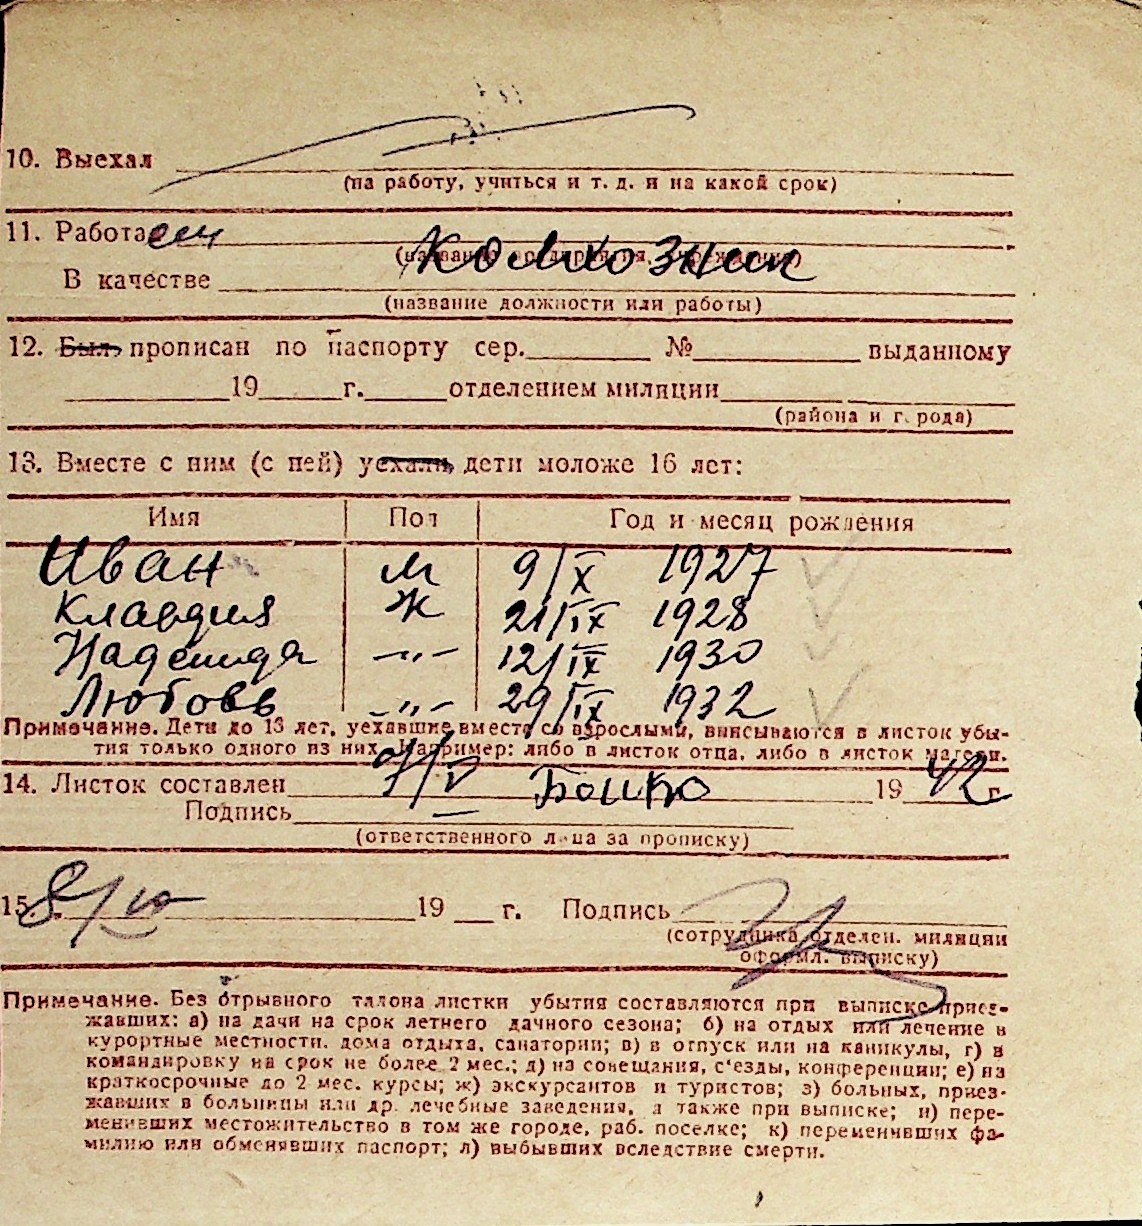 10. Выехал
(на работу, учиться и т. д. и на какой срок)
11. Работает
(название предприятия, учреждения)
колхозник
В качестве
(название должности или работы)
12. Был прописан по паспорту сер. № выданному
19 г. отделением милиции
(района и города)
13. Вместе с ним (с ней) уехали дети моложе 16 лет:
Имя Пол Год и месяц рождения
Иван м 9/X 1927
Клавдия ж 21/IX 1928
Надежда -„- 12/IX 1930
Любовь -„- 29/IX 1932
Примечание. Дети до 13 лет, уехавшие вместе со взрослыми, вписываются в листок убы-
тия только одного из них. Например: либо в листок отца, либо в листок матери.
14. Листок составлен 7/V Бошко 1942 г.
Подпись
(ответственного лица за прописку)
15. 8/ 19 г. Подпись
(сотрудника отделен. милиции
оформл. выписку)
Примечание. Без отрывного талона листки убытия составляются при выписке приез-
жавших: а) на дачи на срок летнего дачного сезона; б) на отдых или лечение в
курортные местности, дома отдыха, санатории; в) в отпуск или на каникулы, г) в
командировку на срок не более 2 мес.; д) на совещания, с'езды, конференции; е) на
краткосрочные до 2 мес. курсы; ж) экскурсантов и туристов; з) больных, приез-
жавших в больницы или др. лечебные заведения, а также при выписке; и) пере-
менивших местожительство в том же городе, раб. поселке; к) переменивших фа-
милию или обменявших паспорт; л) выбывших вследствие смерти.